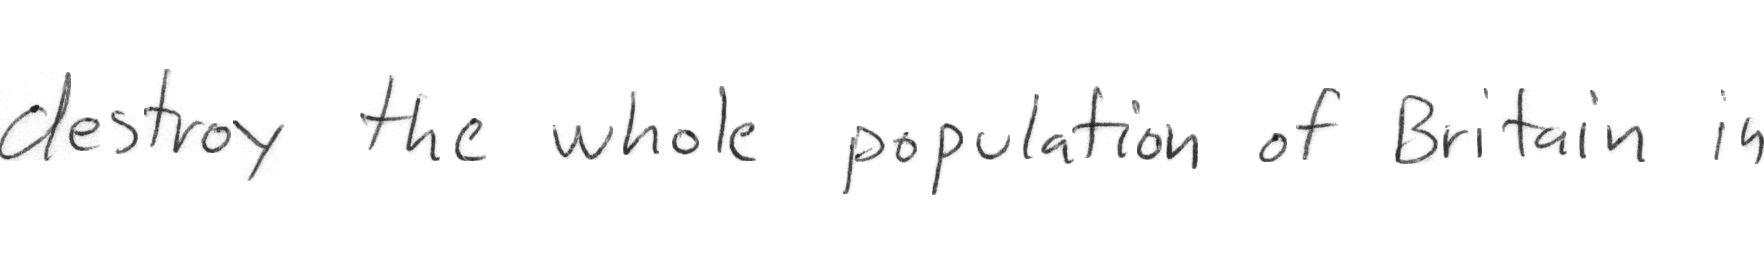 destroy the whole population of Britain in